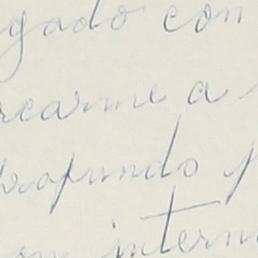 gado con
rcarme a
profundo
intern